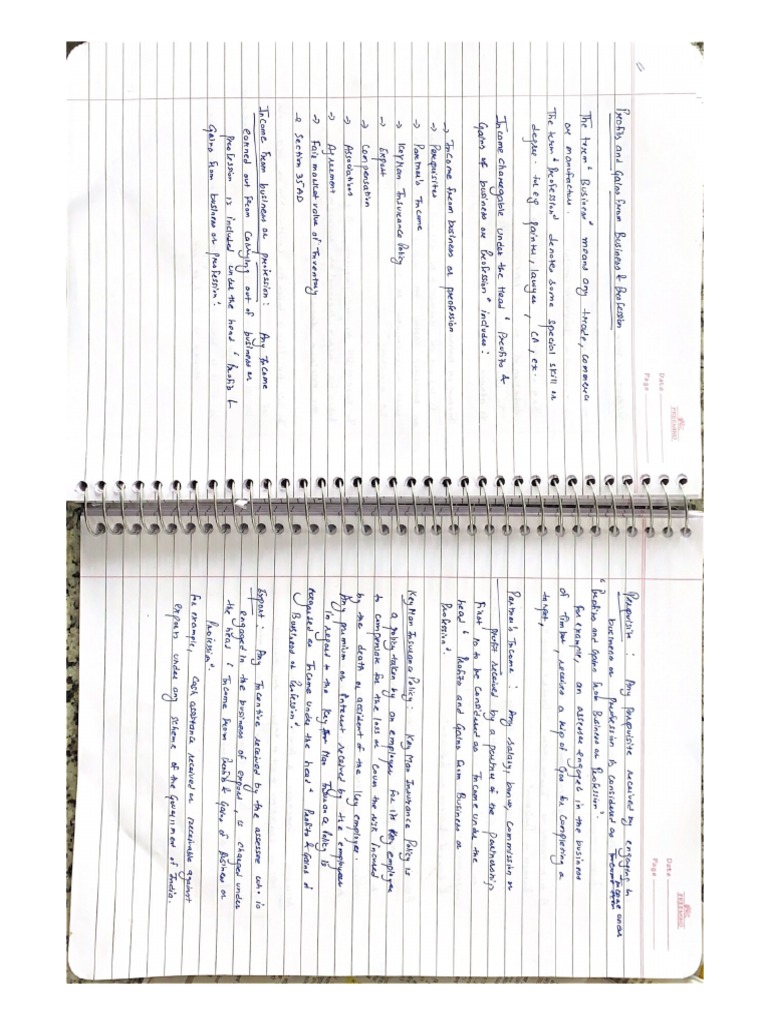 Date
Page
Profits and Gains from Business & Profession
The term "Business" means any trade, commerce
or manufacture.
The term "Profession" denotes some special skill or
degree. the eg painter, lawyer, CA, ex.
Income chargeable under the Head "Profits &
Gains of business or Profession" includes:
→ Income from business or profession
→ Perequisites
→ Partner's Income
→ KeyMan Insurance Policy
→ Export
→ Compensation
→ Associations
→ Agreement
→ Fair market value of Inventory
→ Section 35AD
Income from business or profession: Any Income
earned out from carrying out of business or
profession is included under the head "Profit &
Gains from business or profession".
Date
Page
: Any received by engaging in
business or profession is considered as Income under
"Profits and Gains from Business or Profession".
for example, an assessee engaged in the business
of Timber, received a trip of Goa for completing a
target,
Partner's Income: Any salary, bonus, commission or
profit received by a partner of the partnership
first is to be considered as Income under the
head "Profits and Gains from Business or
Profession".
Key Man Insurance Policy: Key Man Insurance Policy is
a policy taken by an employer for its key employee
to compensate for the loss or cover the risk incured
by the death or accident of the key employee.
Any premium or Interest received by the employer
in regard to the Key Man Insurance Policy is
recognised as Income under the head "Profits & Gains of
Business or Profession".
Export: Any Incentive received by the assessee who is
engaged in the business of export, is charged under
the head "Income from Profit & Gains of Business or
Profession".
for example, Cash assistance received or receivable against
exports under any scheme of the Government of India.